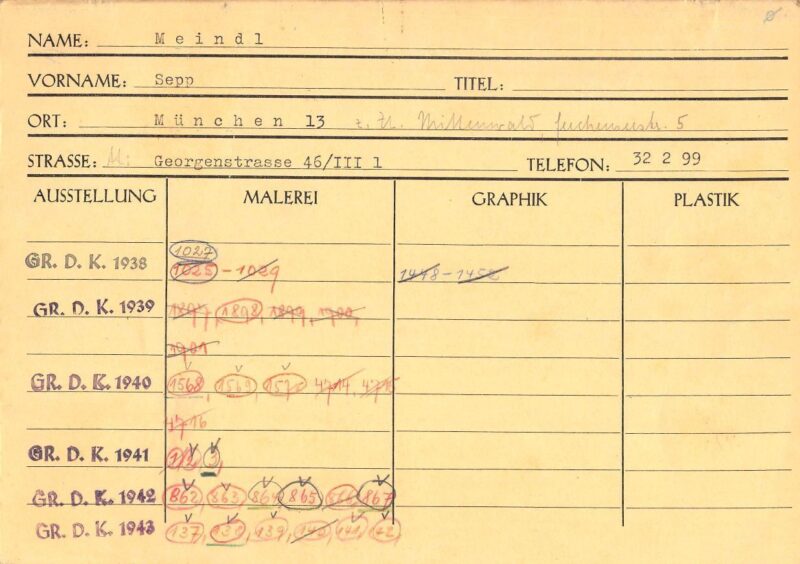 NAME: Meindl
VORNAME: Sepp TITEL:
ORT: München 13 z. Zt. Mittenwald, str. 5
STRASSE: Georgenstrasse 46/III l TELEFON: 32 2 99
AUSSTELLUNG MALEREI GRAPHIK PLASTIK
1027
GR. D. K. 1938 1025 - 1029 1448 - 1452
GR. D. K. 1939 1897, 1898, 1899, 1900,
1901
GR. D. K. 1940 1568, 1569, 1570 4714, 4715
4716
GR. D. K. 1941 3,
GR. D. K. 1942 862, 863, 864, 865, 866, 867
GR. D. K. 1943 137, 138, 139, 140, 141, 142